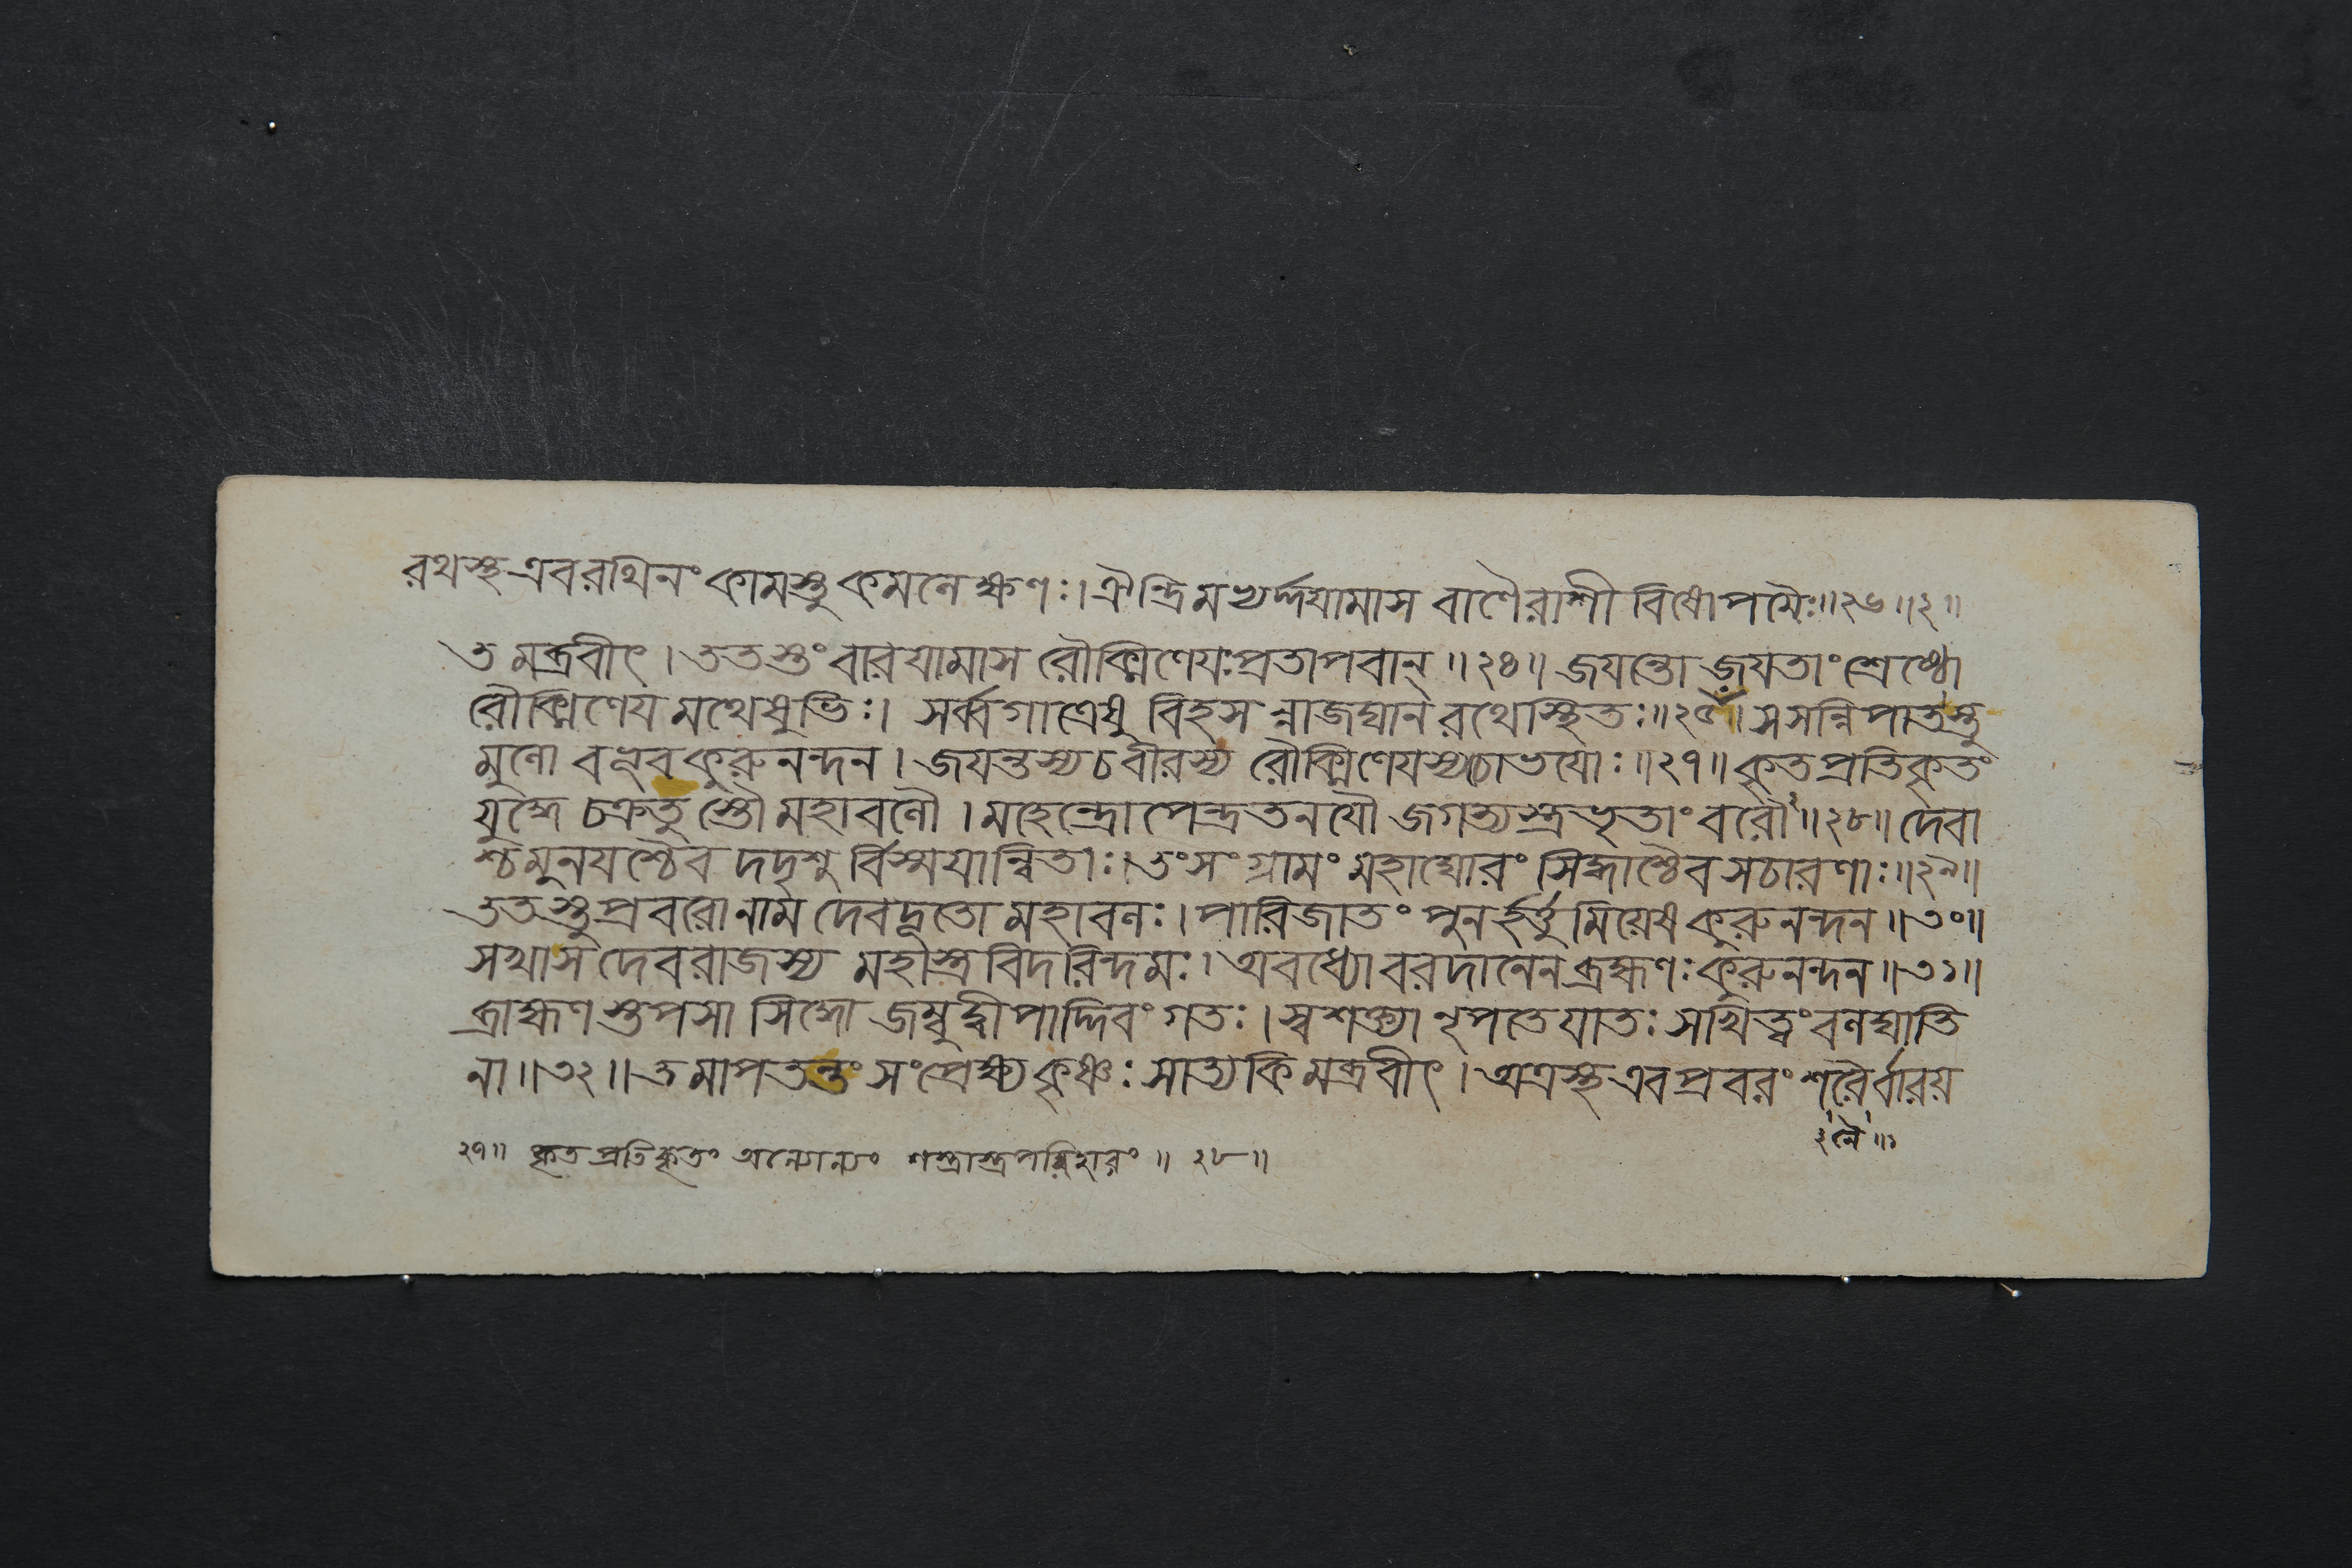 রথস্থ এব রথিনং কামস্তু কমনেক্ষণঃ। ঐন্দ্রিমপ্যর্দ্দয়ামাস বাণৈরাশীবিষোপমৈঃ॥২৬॥২॥
তমব্রবীৎ। ততস্তং বারয়ামাস রৌক্মিণেয়ঃ প্রতাপবান্॥২৪॥ জয়ন্তো জয়তাং শ্রেষ্ঠো
রৌক্মিণেয়মথেষুভিঃ। সর্ব্বগাত্রেষু বিহসন্নাজঘান রথে স্থিতঃ॥২৫॥ স সন্নিপাতস্তু
মুলো বভূব কুরুনন্দন। জয়ন্তস্য চ বীরস্য রৌক্মিণেয়স্য চোভয়োঃ॥২৭॥ কৃতপ্রতিকৃতং
যুদ্ধে চক্রতুস্তৌ মহাবলৌ। মহেন্দ্রোপেন্দ্রতনয়ৌ জগত্যস্ত্রভৃতাং বরৌ॥২৮॥ দেবা
শ্চ মুনয়শ্চৈব দদৃশুর্বিস্ময়ান্বিতাঃ। তং সংগ্রামং মহাঘোরং সিদ্ধাশ্চৈব সচারণাঃ॥২৯॥
ততস্তু প্রবরো নাম দেবদূতো মহাবলঃ। পারিজাতং পুনর্হর্ত্তুমিয়েষ কুরুনন্দন॥৩০॥
সখা স দেবরাজস্য মহাস্ত্রবিদরিন্দমঃ। অবধ্যো বরদানেন ব্রহ্মণঃ কুরুনন্দন॥৩১॥
ব্রাহ্মণস্তপসা সিদ্ধো জম্বুদ্বীপাদ্দিবং গতঃ। স্বশক্ত্যা নৃপতে যাতঃ সখিত্বং বলঘাতি
না॥৩২॥ তমাপতন্তং সংপ্রেক্ষ্য কৃষ্ণঃ সাত্যকিমব্রবীৎ। অত্রস্থ এব প্রবরং শরৈর্বারয়
২৭॥ কৃতপ্রতিকৃতং অন্যোন্যং শস্ত্রাস্ত্রপরিহারং॥২৮॥